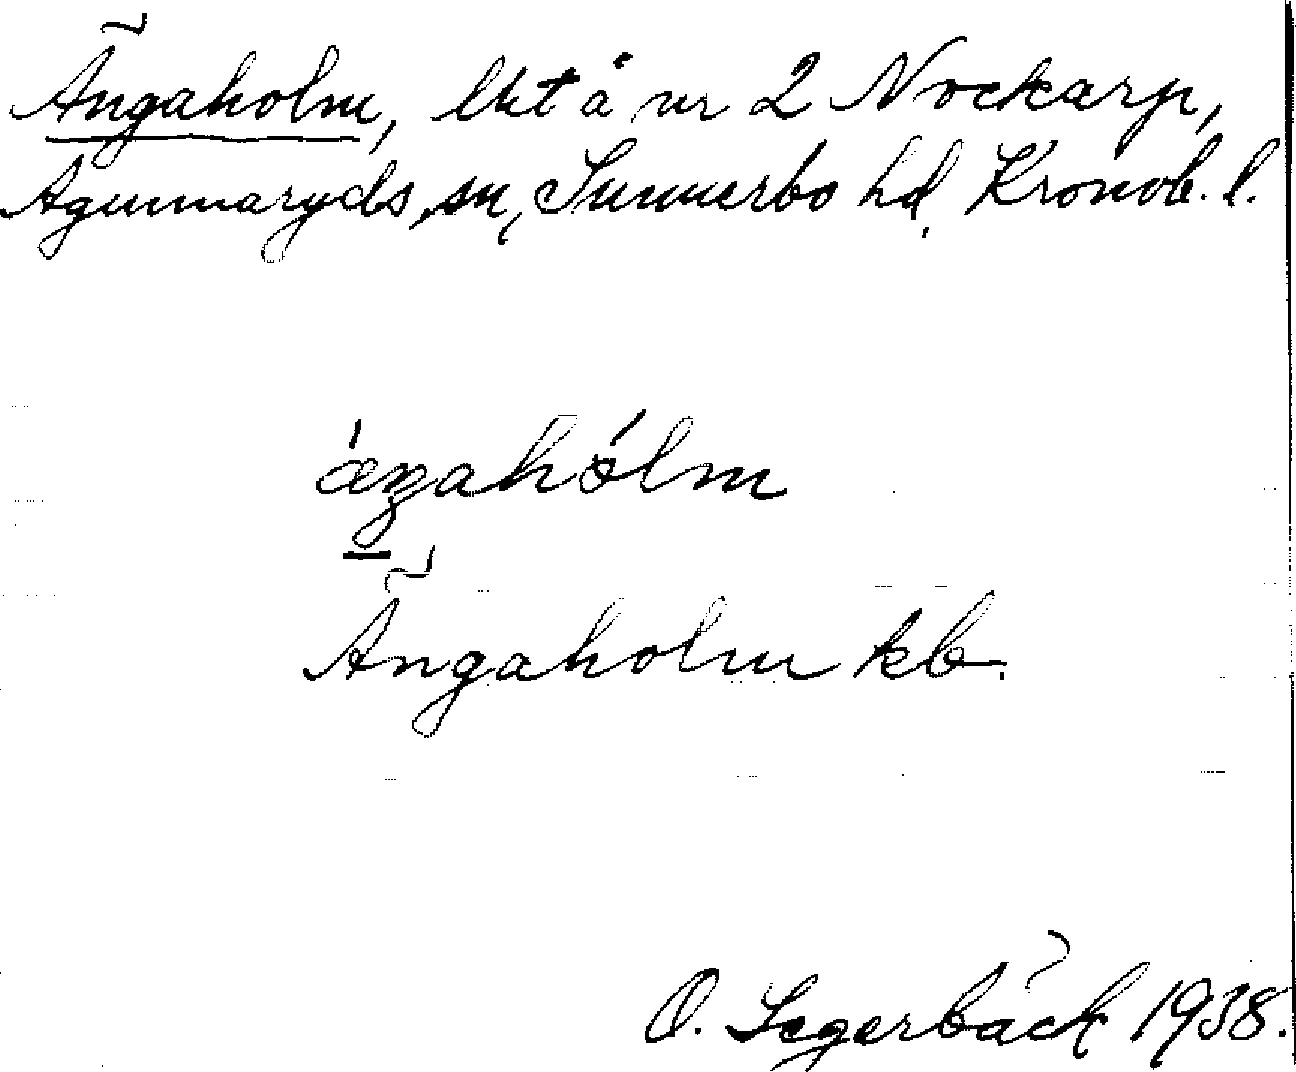 Ängaholm, lht å nr 2 Nockarp,
Agunnaryds sn, Sunnerbo hd, Kronob. l.
ǽŋahólm
Ängaholm kb.
O. Segerbäck 1938.